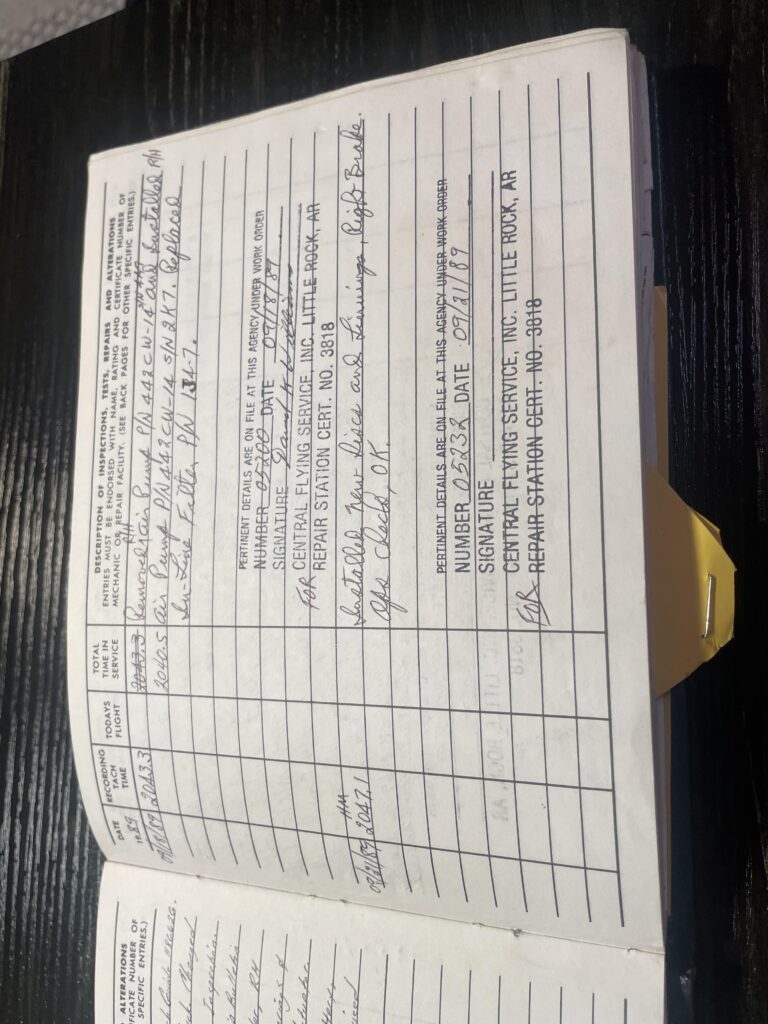 DATE
19 89
RECORDING TACH TIME
TODAYS FLIGHT
TOTAL TIME IN SERVICE
DESCRIPTION OF INSPECTIONS, TESTS, REPAIRS AND ALTERATIONS
ENTRIES MUST BE ENDORSED WITH NAME, RATING AND CERTIFICATE NUMBER OF
MECHANIC OR REPAIR FACILITY. (SEE BACK PAGES FOR OTHER SPECIFIC ENTRIES.)
09/18/89 2043.3 2043.3 Removed R/H air Pump P/N 442CW-14 S/N and Installed R/H
2040.5 air Pump P/N 442CW-14 S/N 2K7. Replaced
In-Line Filter P/N 1J4-7.
PERTINENT DETAILS ARE ON FILE AT THIS AGENCY UNDER WORK ORDER
NUMBER 05200 DATE 09/18/89
SIGNATURE David K Williams
FOR CENTRAL FLYING SERVICE, INC. LITTLE ROCK, AR
REPAIR STATION CERT. NO. 3818
HM
09/21/89 2047.1 Installed New Discs and Linnings, Right Brake.
Ops checks, OK.
PERTINENT DETAILS ARE ON FILE AT THIS AGENCY UNDER WORK ORDER
NUMBER 05232 DATE 09/21/89
SIGNATURE
CENTRAL FLYING SERVICE, INC. LITTLE ROCK, AR
FOR REPAIR STATION CERT. NO. 3818
ALTERATIONS
FICATE NUMBER OF
SPECIFIC ENTRIES.)
Changed
Inspection